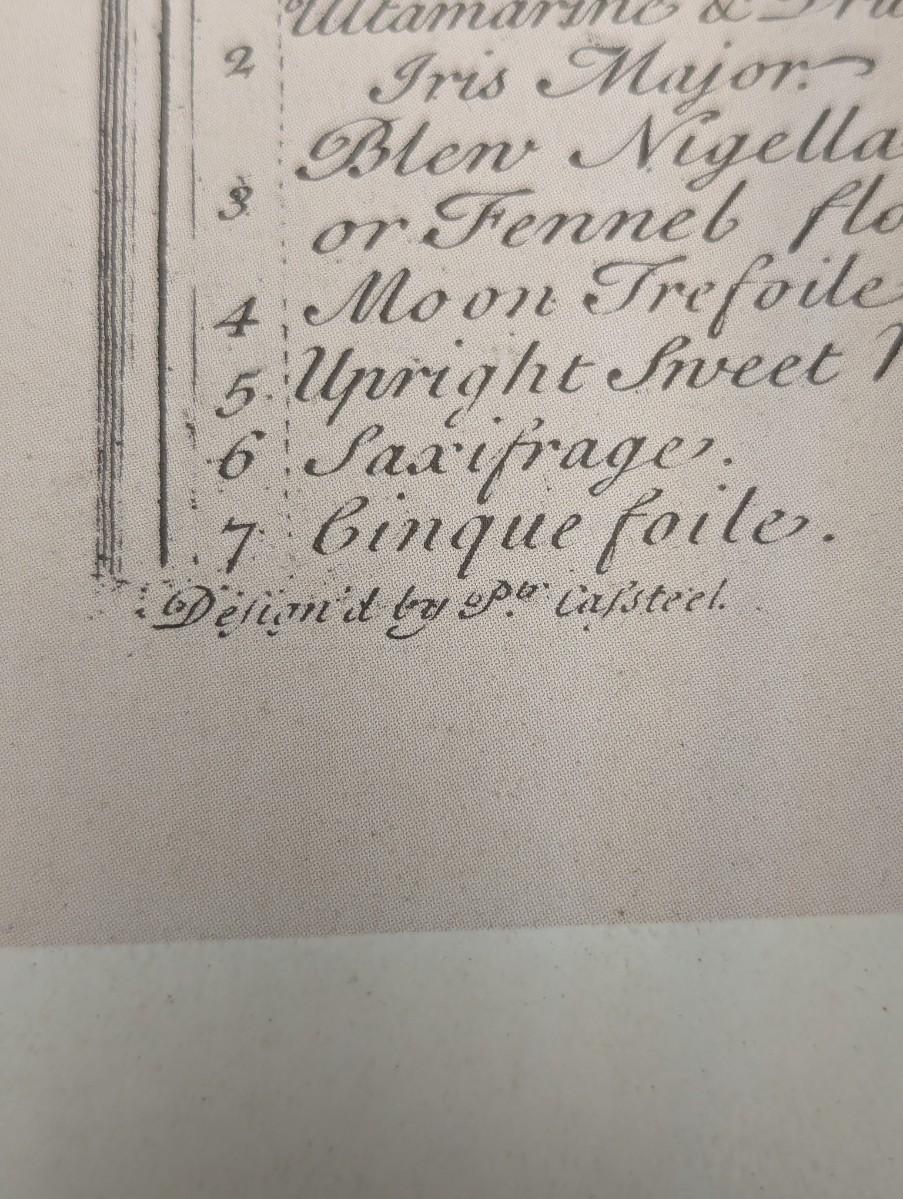 Ultamarine &
2 Iris Major.
Blew Nigella
3 or Fennel flo
4 Moon Trefoile
5 Upright Sweet
6 Saxifrage.
7 Cinque foile.
Deſign'd by Pᵗʳ Caſsteel.